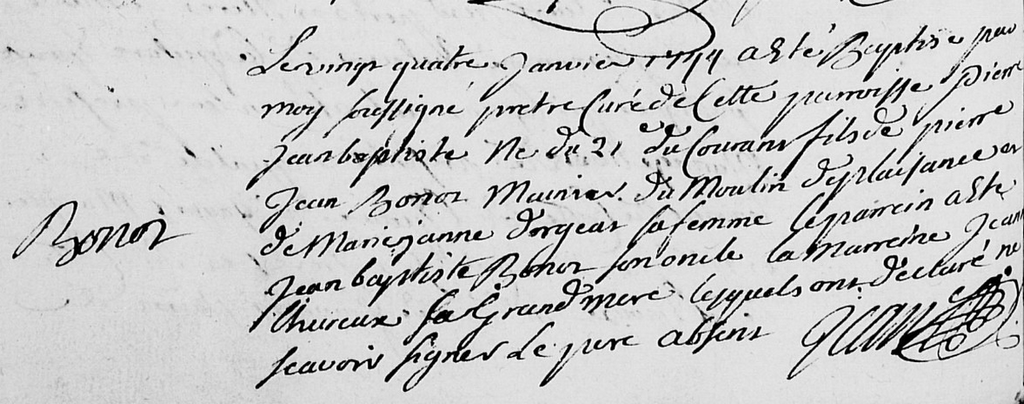 Le vingt quatre Janvier 1744 a Esté Baptise par
moy soussigné pretre Curé de Cette parroisse pierre
jean baptiste Ne du 21e du Courant fils de pierre
Jean Bonot Meunier du Moulin de plaisance et
Bonot
de Marie janne dorgeat sa femme le parrein a Eté
Jean baptiste Bonot son oncle la Marreine Jeanne
lhureux sa Grand mere lesquels ont déclaré ne
scavoir signer Le pere absent